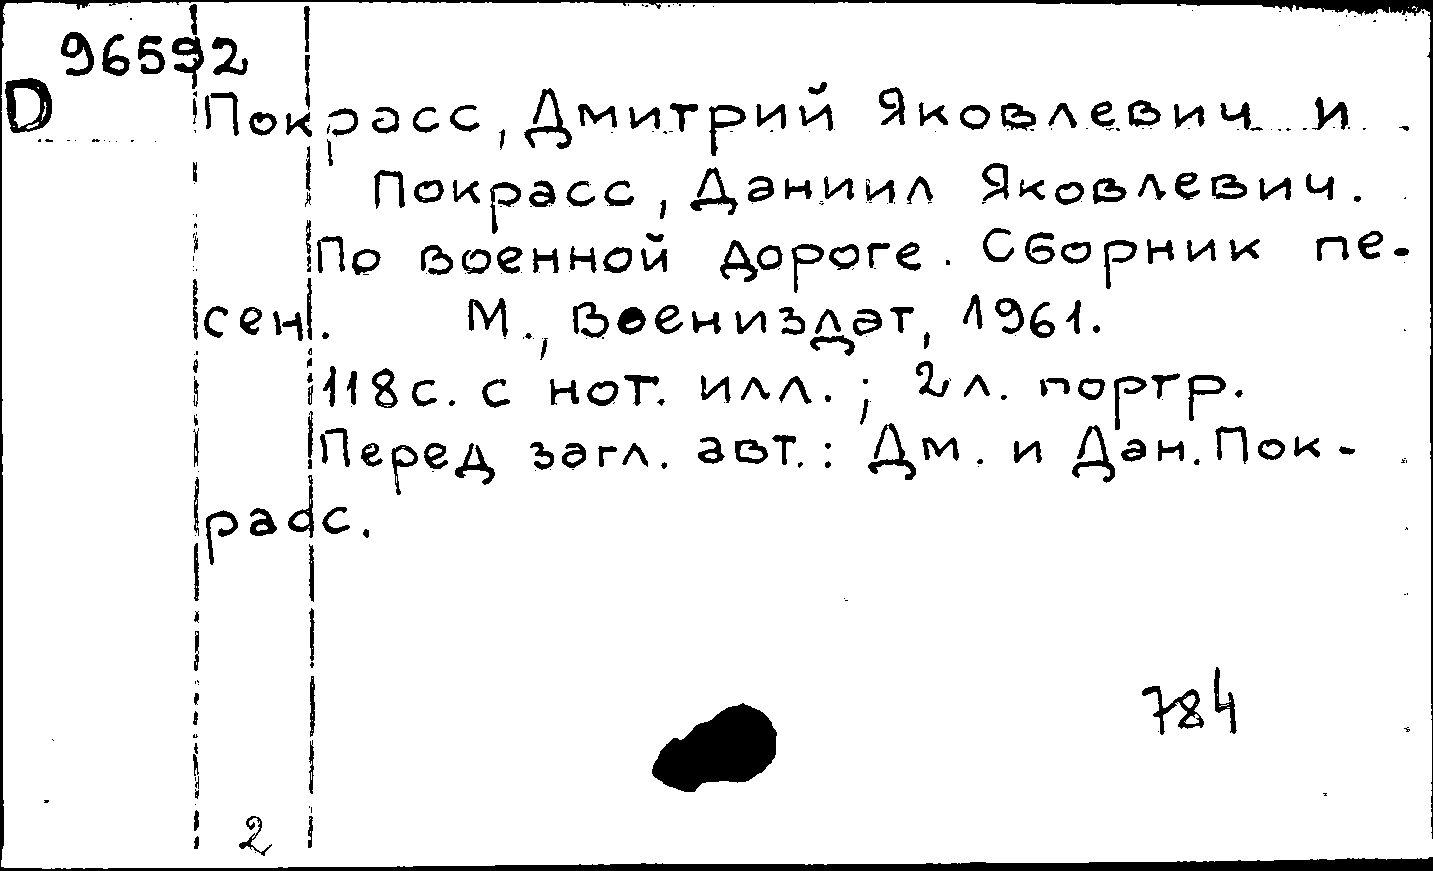 96592
D
Покрасс, Дмитрий Яковлевич и
Покрасс, Даниил Яковлевич.
По военной дороге. Сборник пе-
сен. М., Воениздат, 1961.
118с. с нот. илл.; 2 л. портр.
Перед загл. авт.: Дм. и Дан. Пок-
расс.
784
2